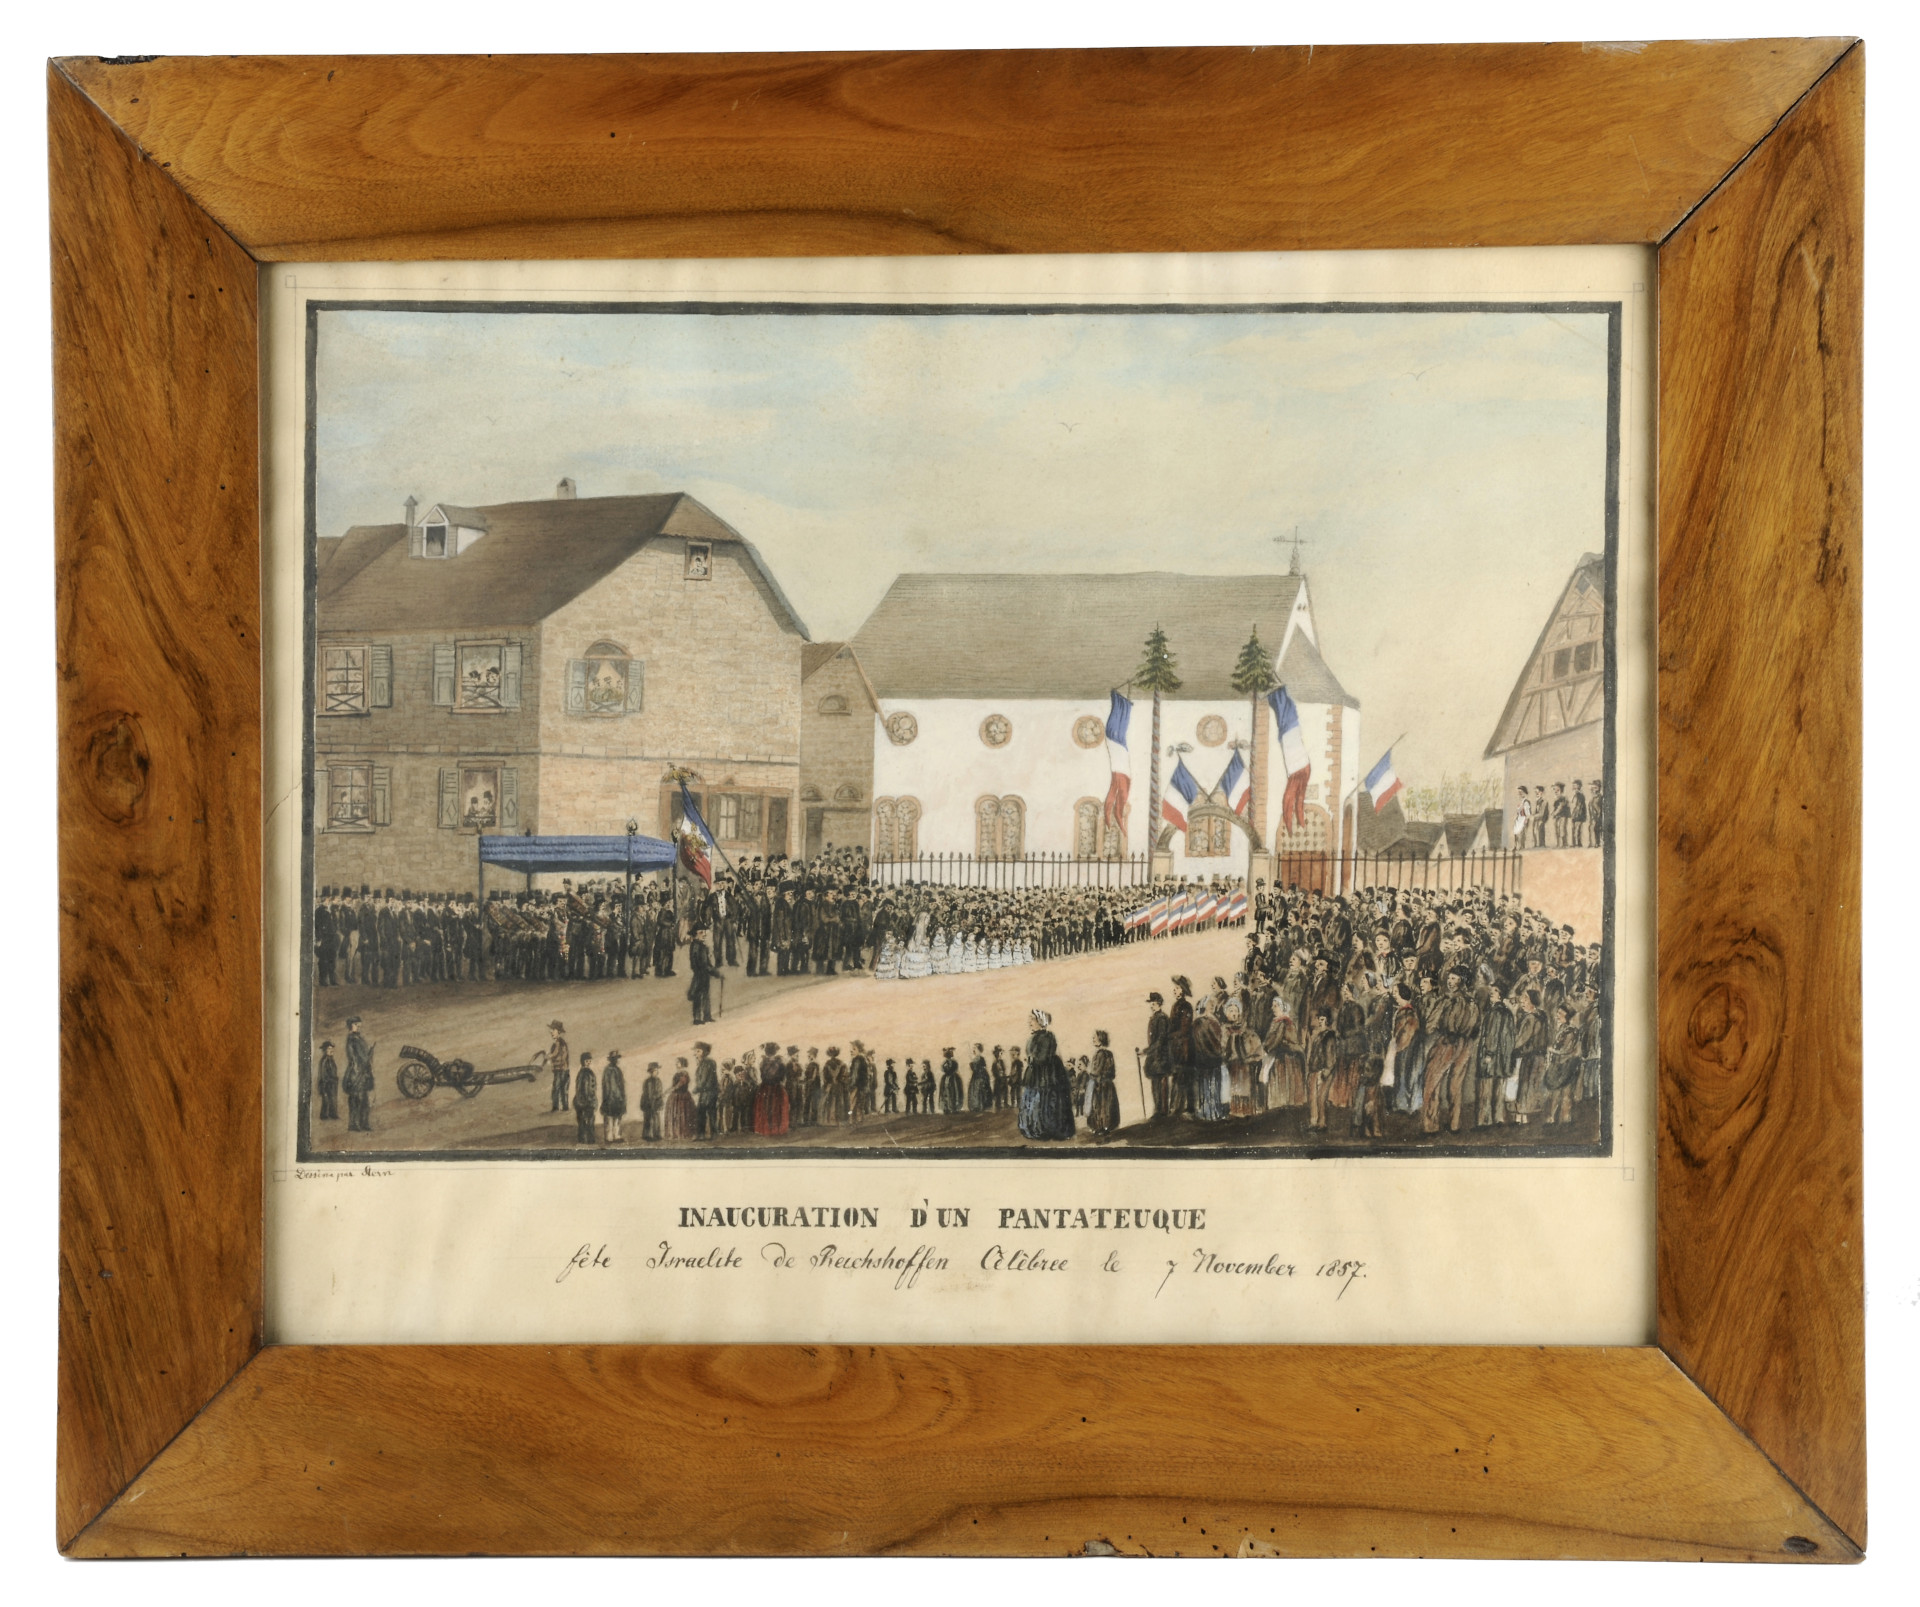 Dessine par
INAUCURATION D'UN PANTATEUQUE
fête Israelite de Reichshoffen Célêbree le 7 November 1857.